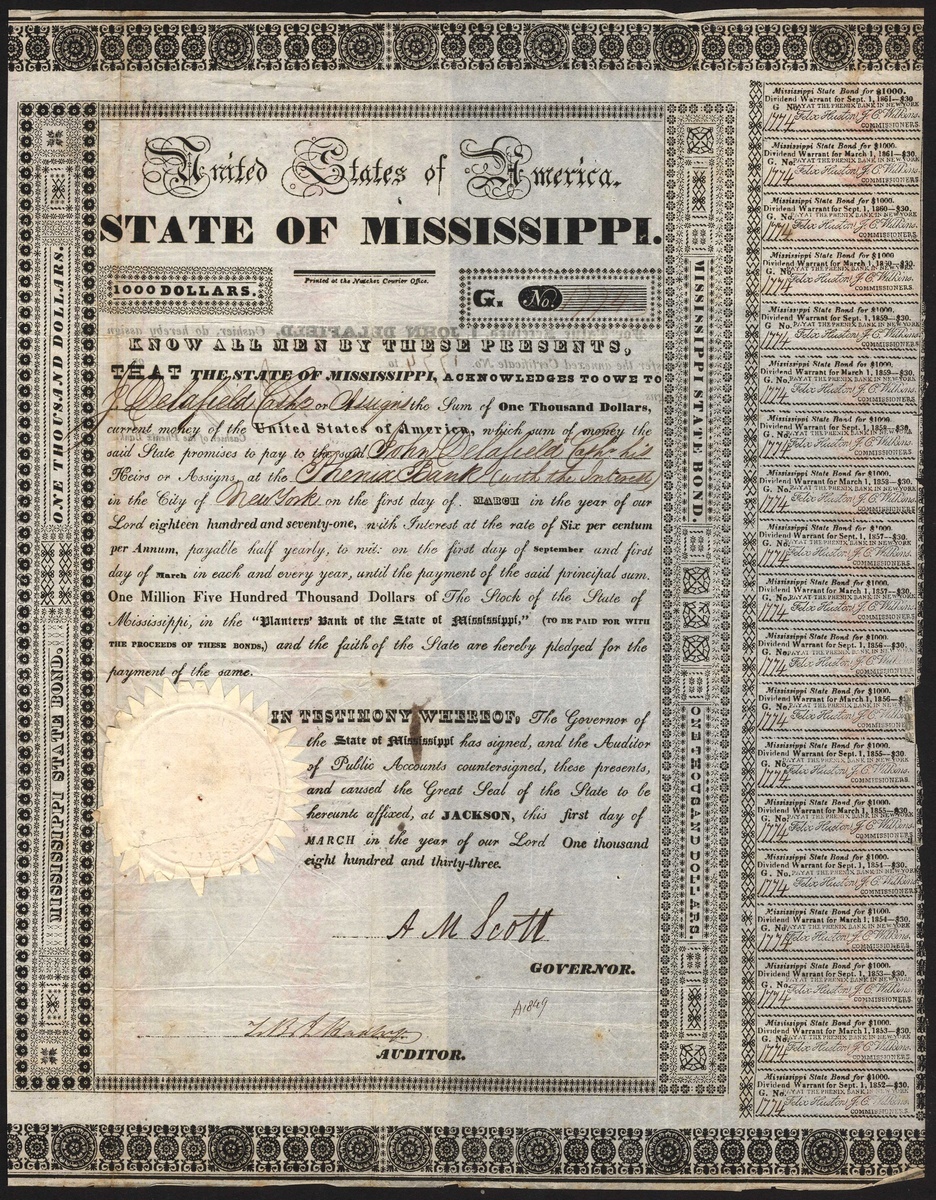 United States of America.
STATE OF MISSISSIPPI.
1000 DOLLARS.
Printed at the Natchez Courier Office.
G. No.
KNOW ALL MEN BY THESE PRESENTS,
THAT THE STATE OF MISSISSIPPI, ACKNOWLEDGES TO OWE TO
J. Delafield Cashr or Assigns the Sum of One Thousand Dollars,
current money of the United States of America, which sum of money the
said State promises to pay to the said John Delafield Cashr his
Heirs or Assigns, at the Phenix Bank (with the Interest)
in the City of New York on the first day of MARCH in the year of our
Lord eighteen hundred and seventy-one, with Interest at the rate of Six per centum
per Annum, payable half yearly, to wit: on the first day of September and first
day of March in each and every year, until the payment of the said principal sum.
One Million Five Hundred Thousand Dollars of The Stock of the State of
Mississippi, in the "Planters' Bank of the State of Mississippi," (TO BE PAID FOR WITH
THE PROCEEDS OF THESE BONDS,) and the faith of the State are hereby pledged for the
payment of the same.
IN TESTIMONY WHEREOF, The Governor of
the State of Mississippi has signed, and the Auditor
of Public Accounts countersigned, these presents,
and caused the Great Seal of the State to be
hereunto affixed, at JACKSON, this first day of
MARCH in the year of our Lord One thousand
eight hundred and thirty-three.
A M Scott
GOVERNOR.
A1849
AUDITOR.
ONE THOUSAND DOLLARS.
MISSISSIPPI STATE BOND.
MISSISSIPPI STATE BOND.
ONE THOUSAND DOLLARS.
Mississippi State Bond for $1000.
Dividend Warrant for Sept. 1, 1861—$30.
G. No. PAY AT THE PHENIX BANK IN NEW YORK
1774 Felix Huston J. C. Wilkins
COMMISSIONERS.
Mississippi State Bond for $1000.
Dividend Warrant for March 1, 1861—$30.
G. No. PAY AT THE PHENIX BANK IN NEW YORK
1774 Felix Huston J. C. Wilkins
COMMISSIONERS.
Mississippi State Bond for $1000.
Dividend Warrant for Sept. 1, 1860—$30.
G. No. PAY AT THE PHENIX BANK IN NEW YORK
1774 Felix Huston J. C. Wilkins
COMMISSIONERS.
Mississippi State Bond for $1000
Dividend Warrant for March 1,
G. No. PAY AT THE PHENIX BANK IN NEW YORK
1774 Felix Huston J. C. Wilkins
COMMISSIONERS.
Mississippi State Bond for $1000.
Dividend Warrant for Sept. 1, 1859—$30.
G. No. PAY AT THE PHENIX BANK IN NEW YORK
1774 Felix Huston J. C. Wilkins
COMMISSIONERS.
Mississippi State Bond for $1000.
Dividend Warrant for March 1, 1859—$30.
G. No. PAY AT THE PHENIX BANK IN NEW YORK
1774 Felix Huston J. C. Wilkins
COMMISSIONERS.
Mississippi State Bond for $1000.
Dividend Warrant for Sept. 1, 1858—$30.
G. No. PAY AT THE PHENIX BANK IN NEW YORK
1774 Felix Huston J. C. Wilkins
COMMISSIONERS.
Mississippi State Bond for $1000.
Dividend Warrant for March 1, 1858—$30.
G. No. PAY AT THE PHENIX BANK IN NEW YORK
1774 Felix Huston J. C. Wilkins
COMMISSIONERS.
Mississippi State Bond for $1000.
Dividend Warrant for Sept. 1, 1857—$30.
G. No. PAY AT THE PHENIX BANK IN NEW YORK
1774 Felix Huston J. C. Wilkins
COMMISSIONERS.
Mississippi State Bond for $1000.
Dividend Warrant for March 1, 1857—$30.
G. No. PAY AT THE PHENIX BANK IN NEW YORK
1774 Felix Huston J. C. Wilkins
COMMISSIONERS.
Mississippi State Bond for $1000.
Dividend Warrant for Sept. 1, 1856—$30.
G. No. PAY AT THE PHENIX BANK IN NEW YORK
1774 Felix Huston J. C. Wilkins
COMMISSIONERS.
Mississippi State Bond for $1000.
Dividend Warrant for March 1, 1856—$30.
G. No. PAY AT THE PHENIX BANK IN NEW YORK
1774 Felix Huston J. C. Wilkins
COMMISSIONERS.
Mississippi State Bond for $1000.
Dividend Warrant for Sept. 1, 1855—$30.
G. No. PAY AT THE PHENIX BANK IN NEW YORK
1774 Felix Huston J. C. Wilkins
COMMISSIONERS.
Mississippi State Bond for $1000.
Dividend Warrant for March 1, 1855—$30.
G. No. PAY AT THE PHENIX BANK IN NEW YORK
1774 Felix Huston J. C. Wilkins
COMMISSIONERS.
Mississippi State Bond for $1000.
Dividend Warrant for Sept. 1, 1854—$30.
G. No. PAY AT THE PHENIX BANK IN NEW YORK
1774 Felix Huston J. C. Wilkins
COMMISSIONERS.
Mississippi State Bond for $1000.
Dividend Warrant for March 1, 1854—$30.
G. No. PAY AT THE PHENIX BANK IN NEW YORK
1774 Felix Huston J. C. Wilkins
COMMISSIONERS.
Mississippi State Bond for $1000.
Dividend Warrant for Sept. 1, 1853—$30.
G. No. PAY AT THE PHENIX BANK IN NEW YORK
1774 Felix Huston J. C. Wilkins
COMMISSIONERS.
Mississippi State Bond for $1000.
Dividend Warrant for March 1, 1853—$30.
G. No. PAY AT THE PHENIX BANK IN NEW YORK
1774 Felix Huston J. C. Wilkins
COMMISSIONERS.
Mississippi State Bond for $1000.
Dividend Warrant for Sept. 1, 1852—$30.
G. No. PAY AT THE PHENIX BANK IN NEW YORK
1774 Felix Huston J. C. Wilkins
COMMISSIONERS.